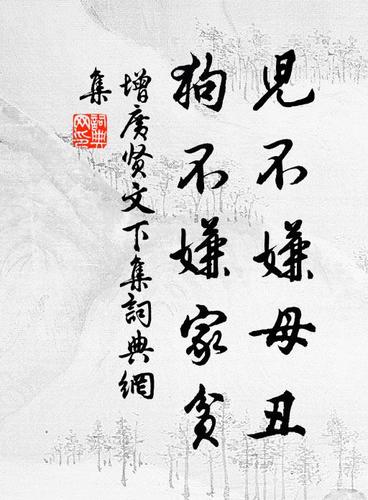 児不嫌母丑
狗不嫌家贫
增广贤文下集詞典網
集